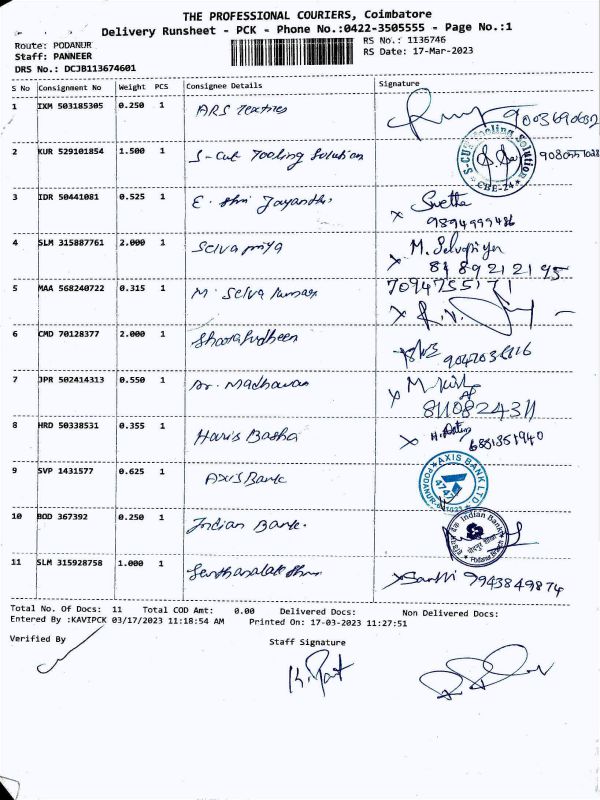 THE PROFESSIONAL COURIERS, Coimbatore
Delivery Runsheet - PCK - Phone No.:0422-3505555 - Page No.:1
Route: PODANUR
RS No.: 1136746
Staff: PANNEER
RS Date: 17-Mar-2023
DRS No.: DCJB113674601
S No Consignment No Weight PCS Consignee Details Signature
1 IXM 503185305 0.250 1 ARS Textiles
2 KUR 529101854 1.500 1 S-Cut Tooling Solution
S-CUT Tooling Solution CBE-24
3 IDR 50441081 0.525 1 E. Shri Jayanthi Swetha
x 9894999486
4 SLM 315887761 2.000 1 Selva priya M. Selvapriya
x 8489212195
5 MAA 568240722 0.315 1 M. Selva kumar 7094755171
x
6 CMD 70128377 2.000 1 Sharafudheen
7 JPR 502414313 0.550 1 Madhavan
x 8110824311
8 HRD 50338531 0.355 1 Haris Basha x
9 SVP 1431577 0.625 1 Axis Bank
AXIS BANK LTD. PODANUR
10 BOD 367392 0.250 1 Indian Bank.
Indian Bank
11 SLM 315928758 1.000 1 x Santhi 9943849874
Total No. Of Docs: 11 Total COD Amt: 0.00 Delivered Docs: Non Delivered Docs:
Entered By :KAVIPCK 03/17/2023 11:18:54 AM Printed On: 17-03-2023 11:27:51
Verified By Staff Signature